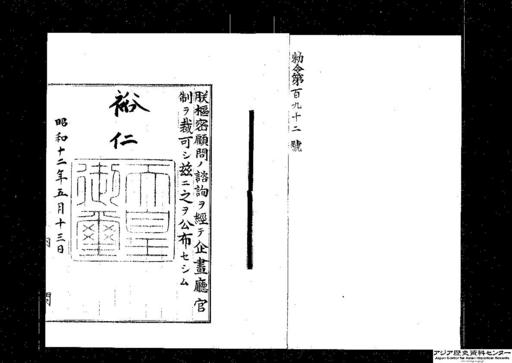 勅令第百九十二號
朕樞密顧問ノ諮詢ヲ經テ企畫廳官
制ヲ裁可シ茲ニ之ヲ公布セシム
裕仁
天皇
御璽
昭和十二年五月十三日
内
閣
アジア歴史資料センター
Japan Center for Asian Historical Records